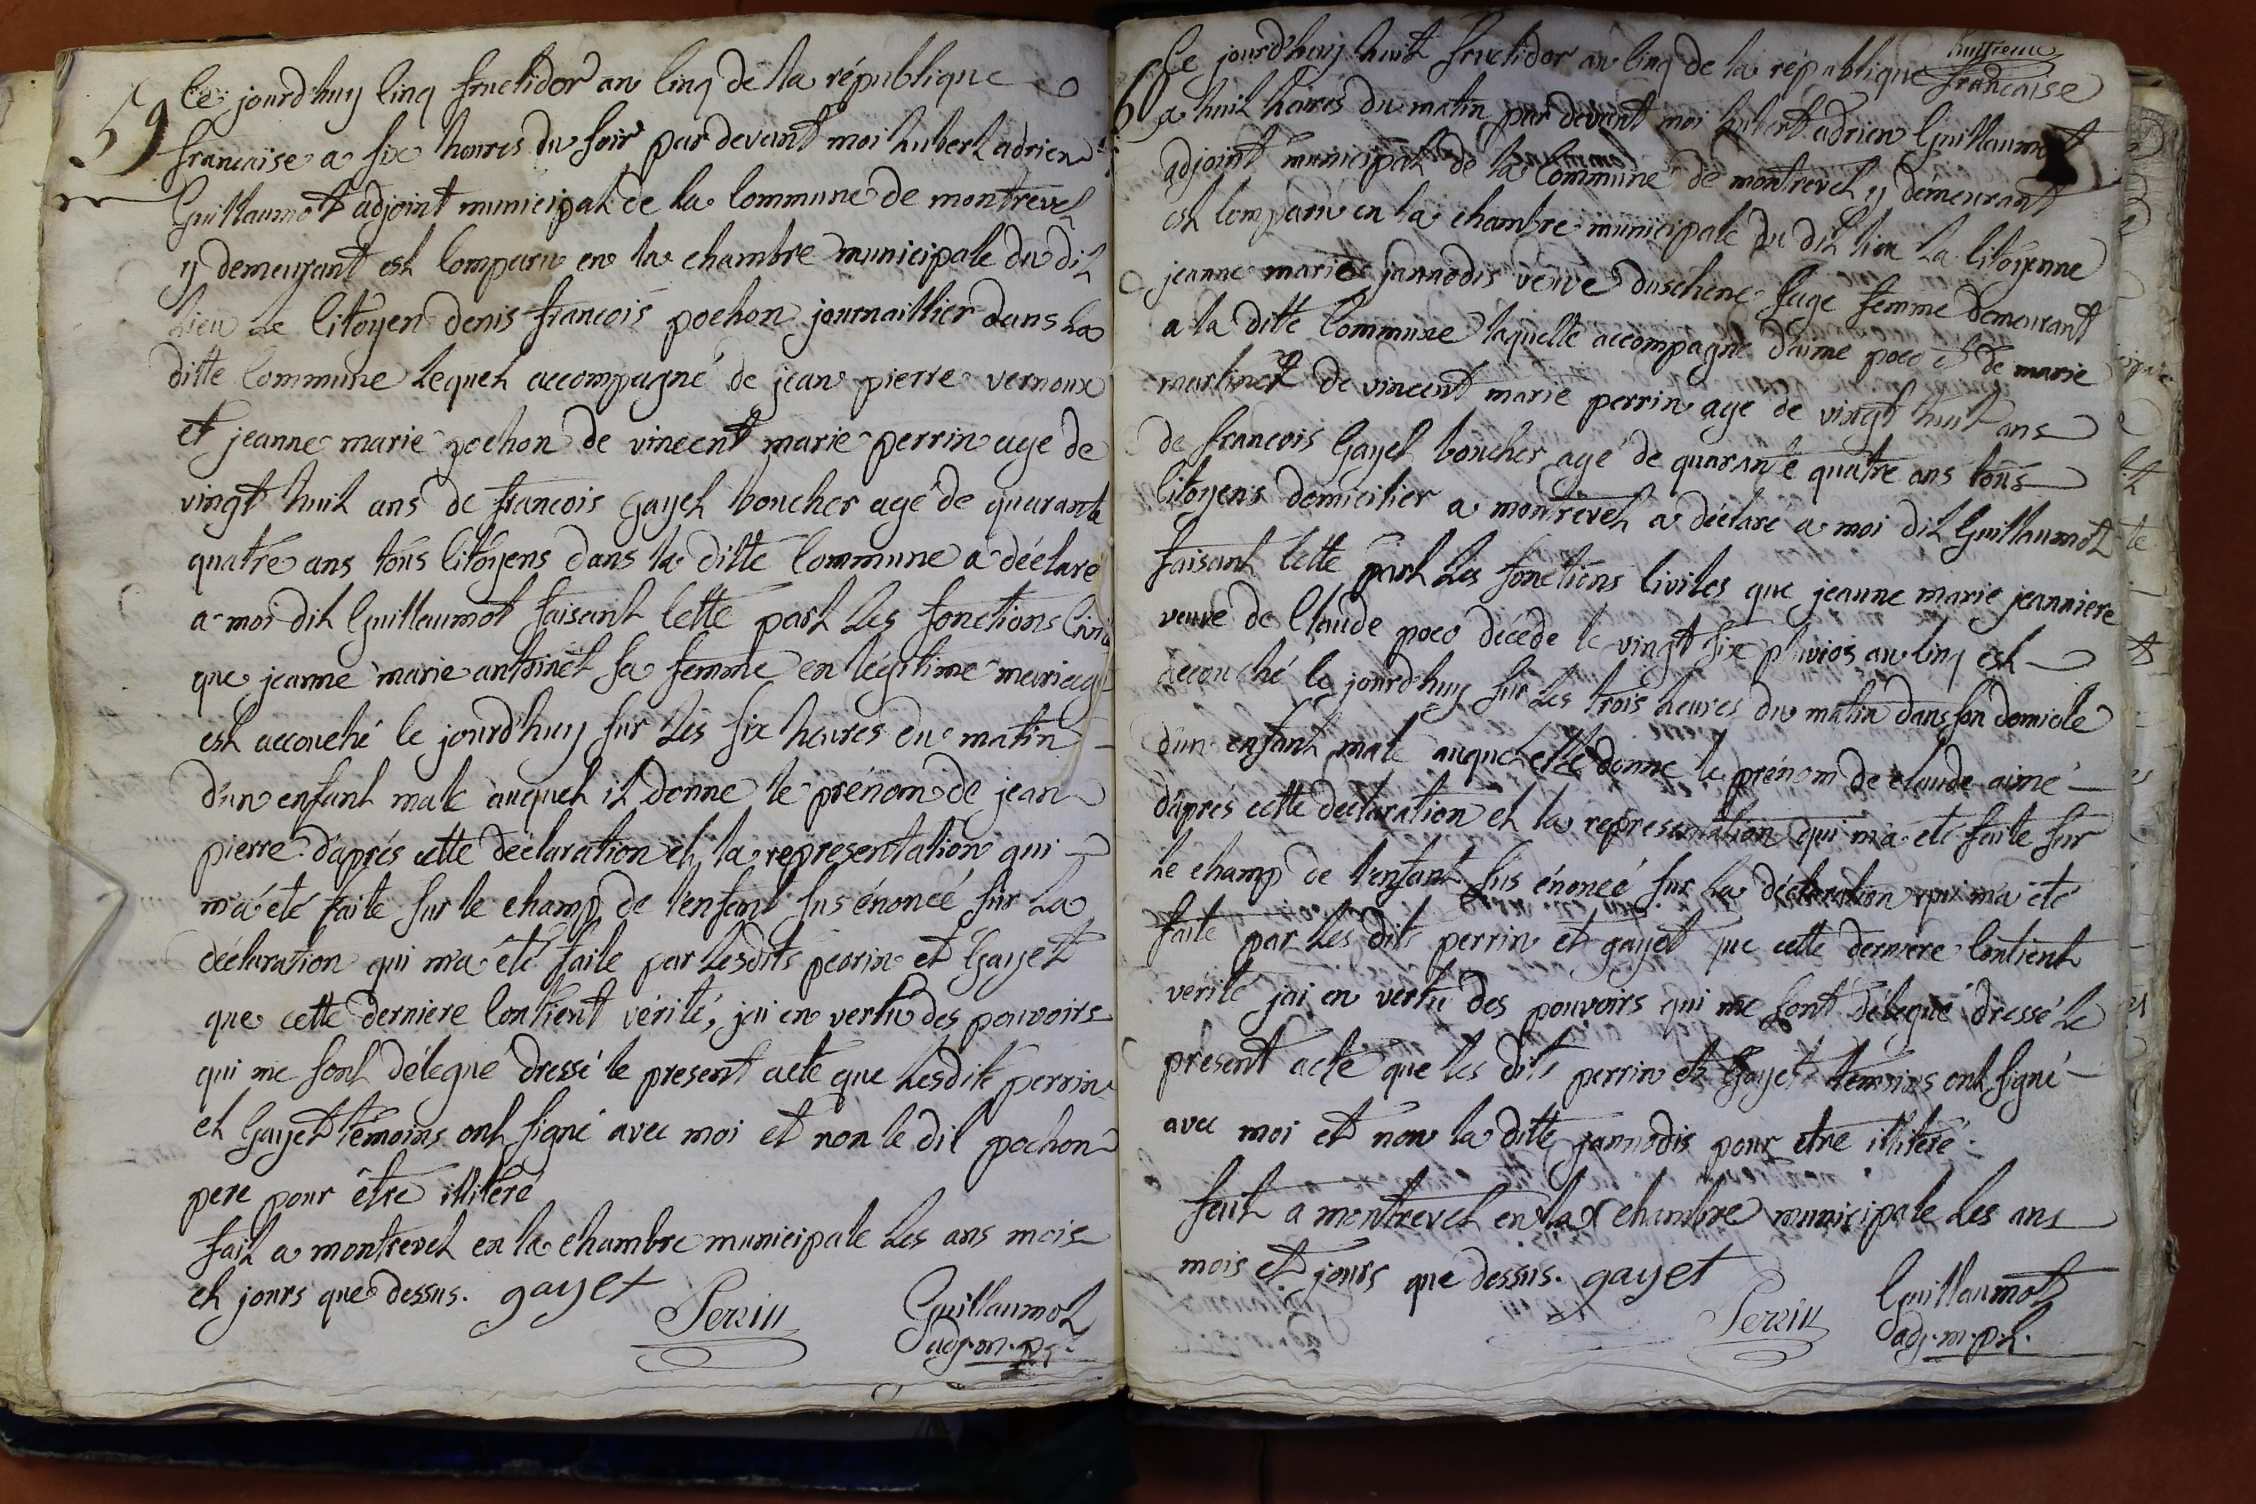 59
Ce jourd'huy cinq fructidor an cinq de la république
francaise a six heures du soir par devant moi hubert adrien
Guillaumot adjoint municipal de la Commune de montrevel
y demeurant est Comparu en la chambre municipale du dit
Lieu Le Citoyen denis francois pochon journaillier dans la
ditte Commune Lequel accompagné de jean pierre vernoux
et jeanne marie pochon de vincent marie perrin age de
vingt huit ans de francois Gayet boucher agé de quarante
quatre ans tous Citoyens dans la ditte Commune a déclaré
a moi dit Guillaumot faisant Cette part Les fonctions
que jeanne marie antoinet sa femme en légitime mariage
est accouché ce jourd'huy sur les six heures du matin
d'un enfant male auquel il donne le prénom de jean
pierre d'aprés cette déclaration et la representation qui
m'a été faite sur le champ de l'enfant sus énoncé sur La
déclaration qui m'a été faite par Lesdits perrin et Gayet
que cette derniere Contient vérité, jai en vertu des pouvoirs
qui me sont délegué dressé le present acte que Lesdits perrin
et Gayet témoins ont signé avec moi et non le dit pochon
pere pour être illiteré
fait a montrevel en la chambre municipale Les ans mois
et jours que dessus. gayet
Perrin
Guillaumot
adj. m. pl.
60
Ce jourd'huy huit fructidor an cinq de la république francaise
a huit heures du matin par devant moi hubert adrien Guillaumot
adjoint municipal de la Commune de montrevel y demeurant
est Comparu en la chambre municipale du dit lieu La Citoyenne
jeanne marie jannodis veuve duschene sage femme demeurant
a la ditte Commune laquelle accompagné d'aimé poco et de marie
martinet de vincent marie perrin age de vingt huit ans
de francois Gayet boucher agé de quarante quatre ans tous
Citoyens domicilier a montrevel a déclaré a moi dit Guillaumot
faisant Cette part Les fonctions Civiles que jeanne marie jeanniere
veuve de Claude poco décédé le vingt six pluvios an Cinq est
accouché le jourd'huy sur Les trois heures du matin dans son domicile
d'un enfant male auquel elle donne le prénom de claude aimé
d'aprés cette déclaration et la representation qui m'a été faite sur
Le champ de l'enfant sus énoncé sur La déclaration qui m'a été
faite par Les dits perrin et gayet que cette derniere Contient
verité jai en vertu des pouvoirs qui me sont délegué dressé Le
présent acte que les dits perrin et Gayet témoins ont signé
avec moi et non la ditte jannodis pour etre illiteré.
fait a montrevel en la chambre municipale Les ans
mois et jours que dessus. gayet
Perrin
Guillaumot
adj. m. pl.